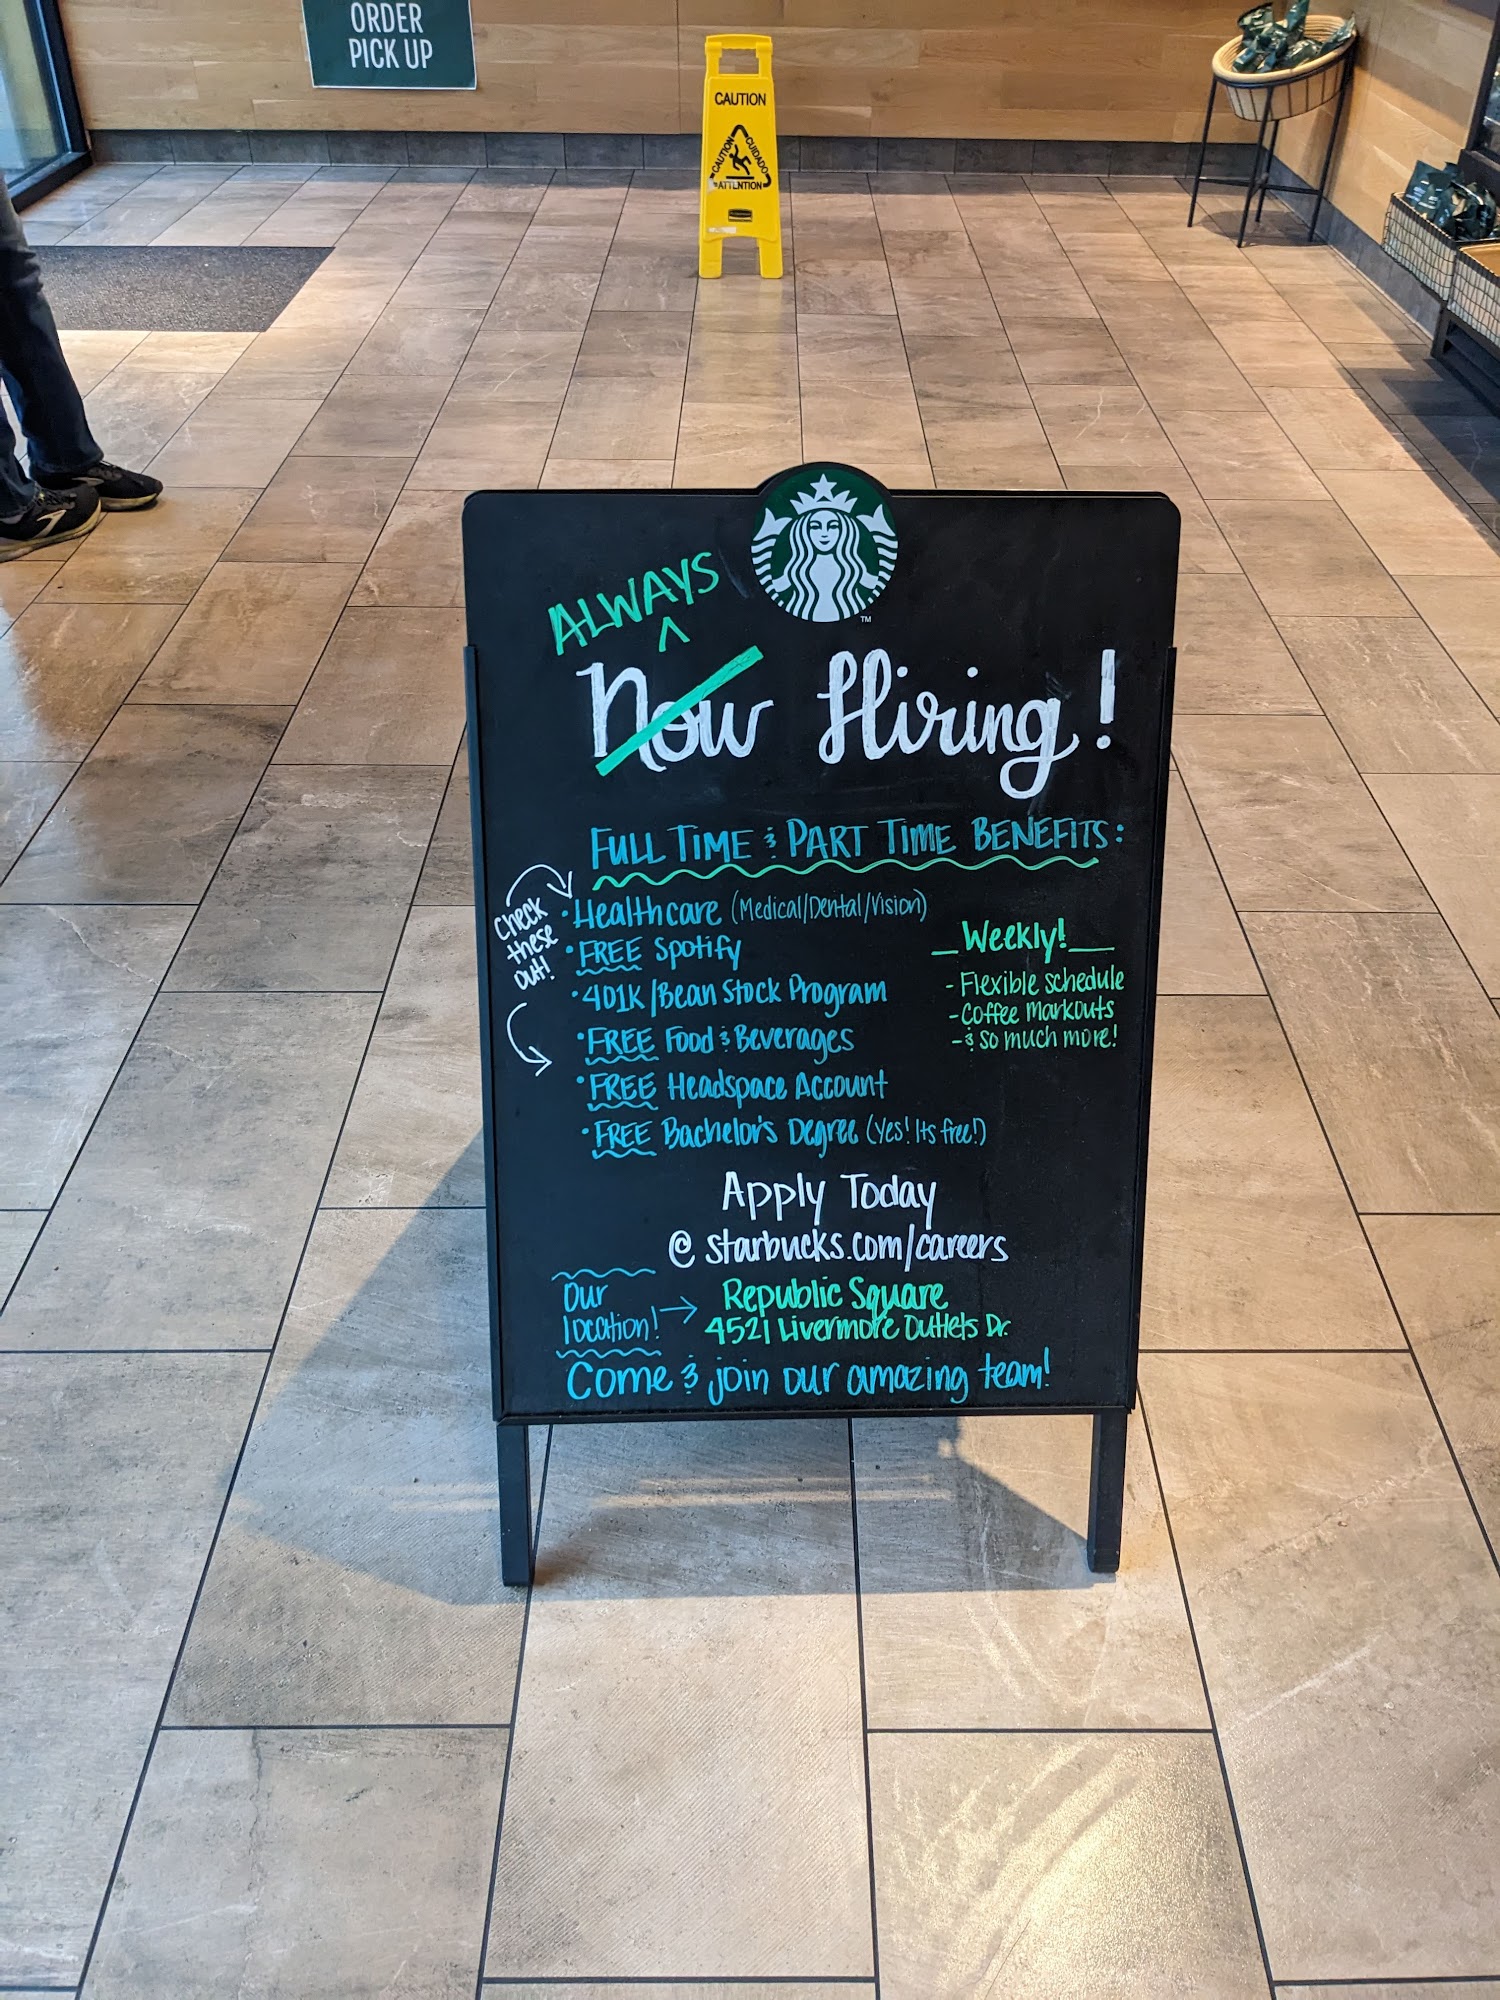 ORDER
PICK UP
CAUTION
CAUTION CUIDADO
ATTENTION
ALWAYS
^
Now Hiring!
FULL TIME & PART TIME BENEFITS:
Check
these
out!
• Healthcare (Medical/Dental/Vision)
• FREE Spotify
• 401K/Bean Stock Program
• FREE Food & Beverages
• FREE Headspace Account
• FREE Bachelor's Degree (Yes! Its free!)
Weekly!
- Flexible schedule
- Coffee Markouts
- & so much more!
Apply Today
@ starbucks.com/careers
Our
location! → Republic Square
4521 Livermore Outlets Dr.
Come & join our amazing team!
TM